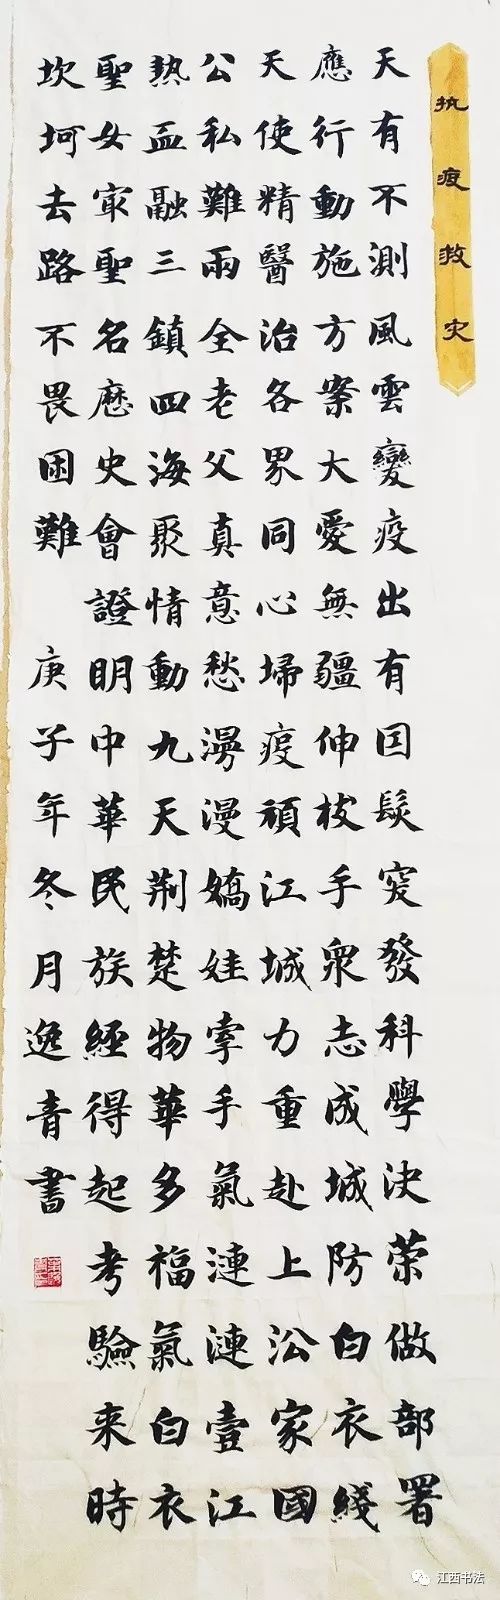 执疫救灾
天有不測風雲變疫出有囙髮突發科學决策做部署
應行動施方案大愛無疆伸枝手衆志成城防白衣綫
天使精醫治各界同心埽疫頑江城力重赴上㳂家國
公私難兩全老父真意愁漫漫嬌娃牽手氣漣漣壹江
熱血融三鎮四海聚情動九天荆楚物華多福氣白衣
聖女㝡聖名歷史會證明中華民族經得起考驗来時
坎坷去路不畏困難 庚子年冬月逸青書
江西书法